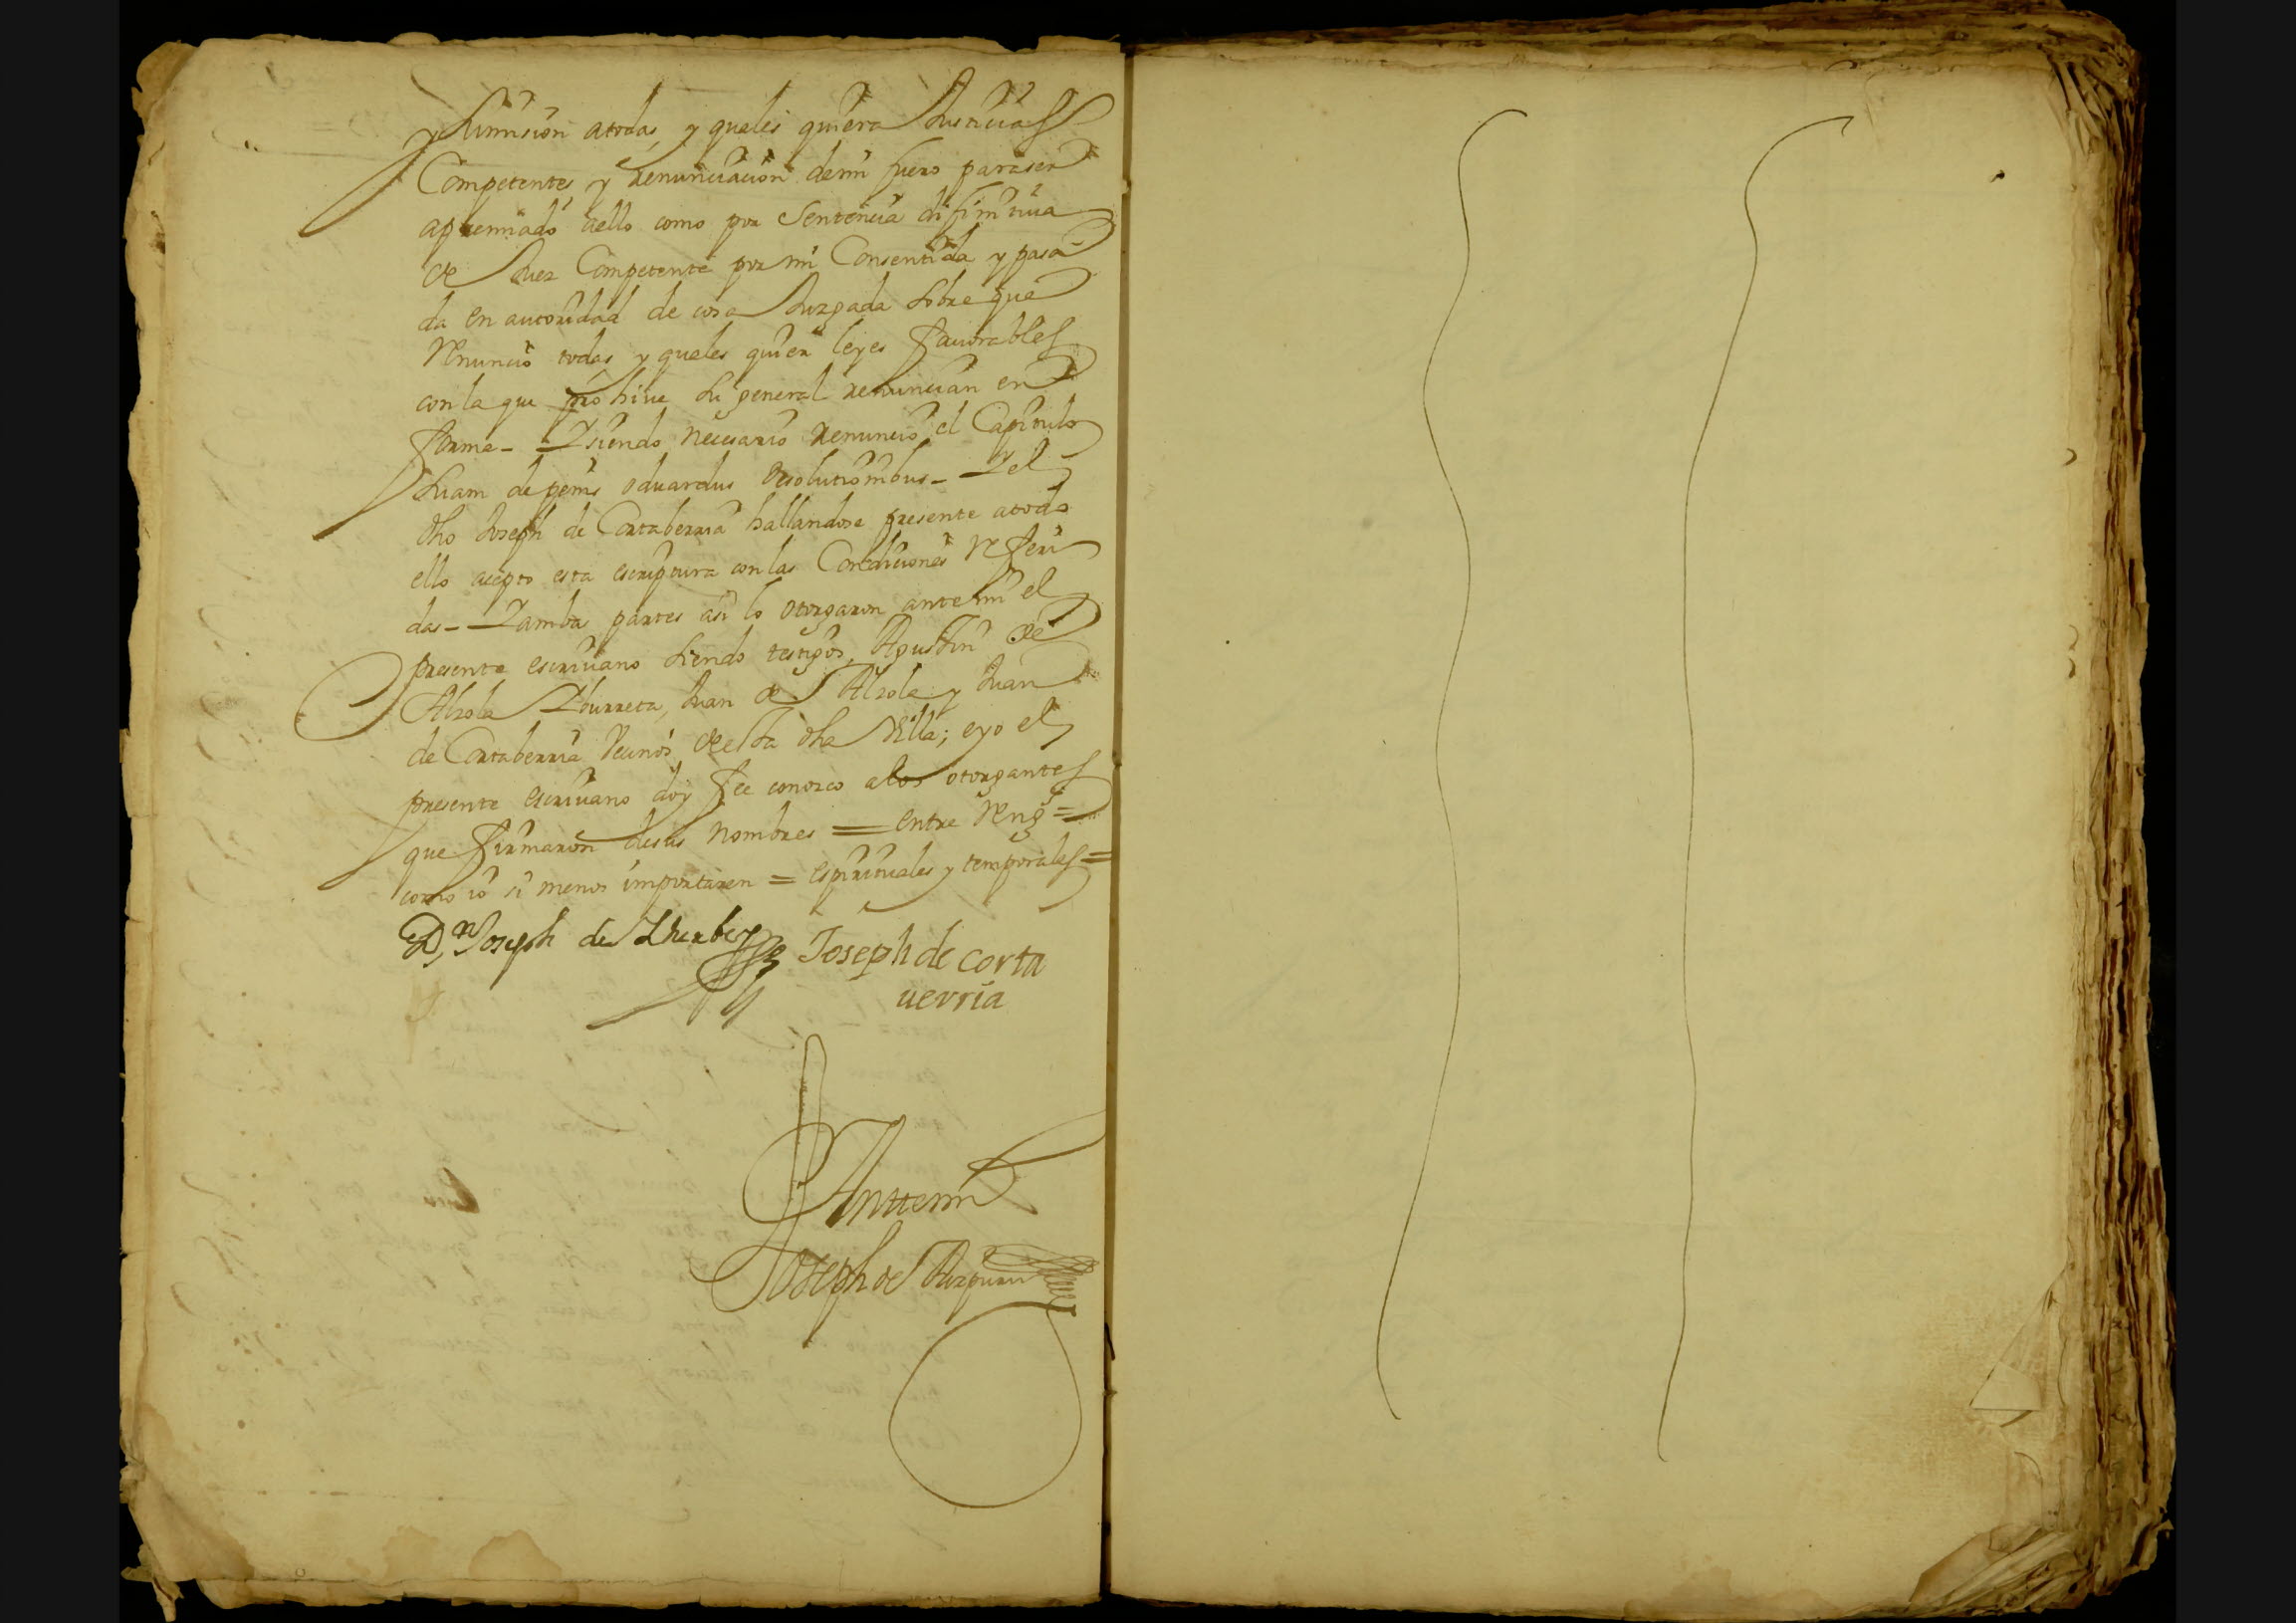 y sumision atodas, y quales quiera Justicias
Competentes y renunciacion demi fuero paraser
apremiado aello como por Sentencia difinitiua
de Juez Competente por mi Consentida y pasa
da en autoridad de cosa Juzgada sobre que
Renuncio todas y quales quier leyes fauorables
con la que prohiue la general renunciacion en
forma - Y siendo necesario Renuncio el Capitulo
suam de penis oduardus de solutionibus - Y el
dho Joseph de Cortaberria hallandose presente atodo
ello acepto esta escriptura con las Condiciones referi
das - Y ambas partes asi lo otorgaron ante mi el
presente escriuano siendo testigos, Agustin de
Alzola Yburreta, Juan de Alzola y Juan
de Cortaberria Vecinos de esta dha Villa; e yo el
presente escriuano doy fee conozco a los otorgantes
que firmaron desus nombres = entre Reng =
como si menos importaren = espirituales y temporales =
Dn Joseph de Joseph de corta
uerria
Antemi
Joseph de